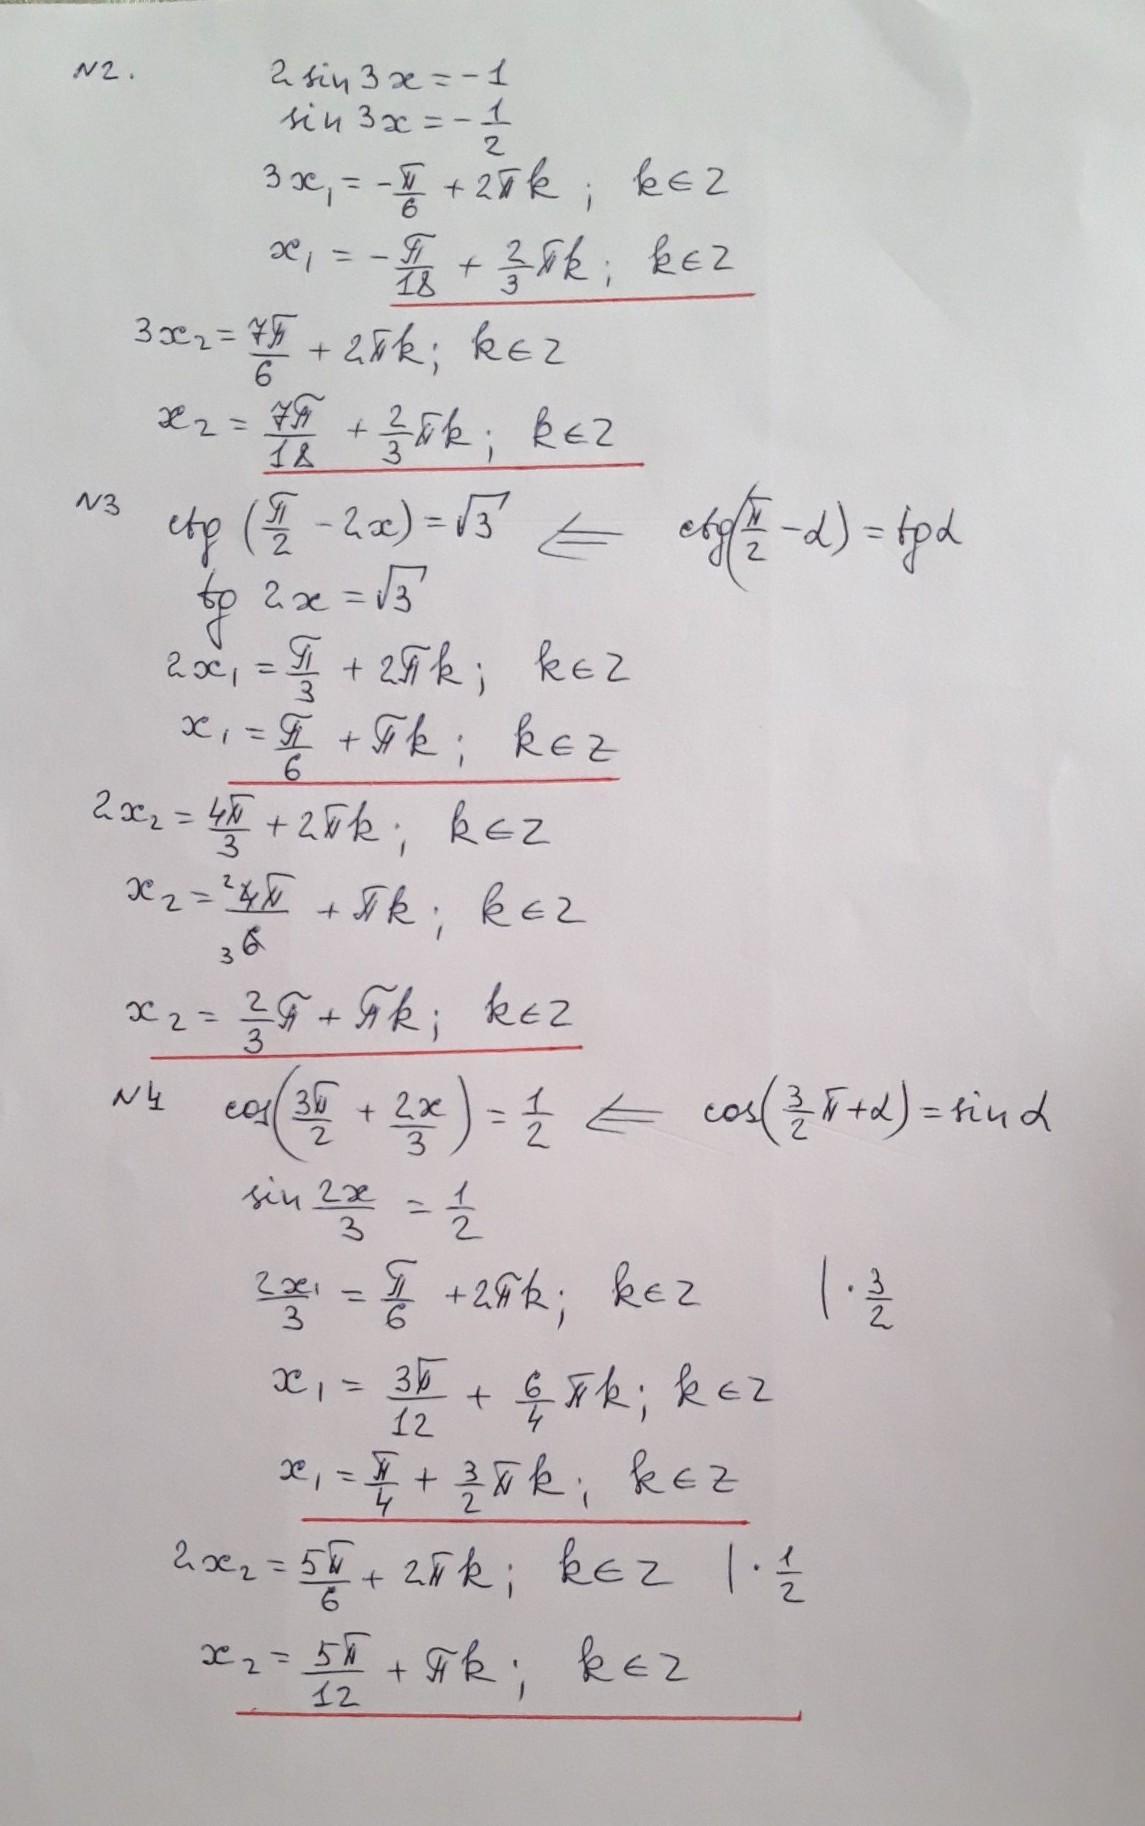 N2.
2 sin 3x = -1
sin 3x = -1/2
3x₁ = -π/6 + 2πk ; k∈Z
x₁ = -π/18 + 2/3 πk ; k∈Z
3x₂ = 7π/6 + 2πk ; k∈Z
x₂ = 7π/18 + 2/3 πk ; k∈Z
N3 ctg (π/2 - 2x) = √3 ⇐ ctg(π/2 - α) = tg α
tg 2x = √3
2x₁ = π/3 + 2πk ; k∈Z
x₁ = π/6 + πk ; k∈Z
2x₂ = 4π/3 + 2πk ; k∈Z
x₂ = ²4π/₃6 + πk ; k∈Z
x₂ = 2/3 π + πk ; k∈Z
N4 cos(3π/2 + 2x/3) = 1/2 ⇐ cos(3/2 π + α) = sin α
sin 2x/3 = 1/2
2x₁/3 = π/6 + 2πk ; k∈Z | · 3/2
x₁ = 3π/12 + 6/4 πk ; k∈Z
x₁ = π/4 + 3/2 πk ; k∈Z
2x₂ = 5π/6 + 2πk ; k∈Z | · 1/2
x₂ = 5π/12 + πk ; k∈Z